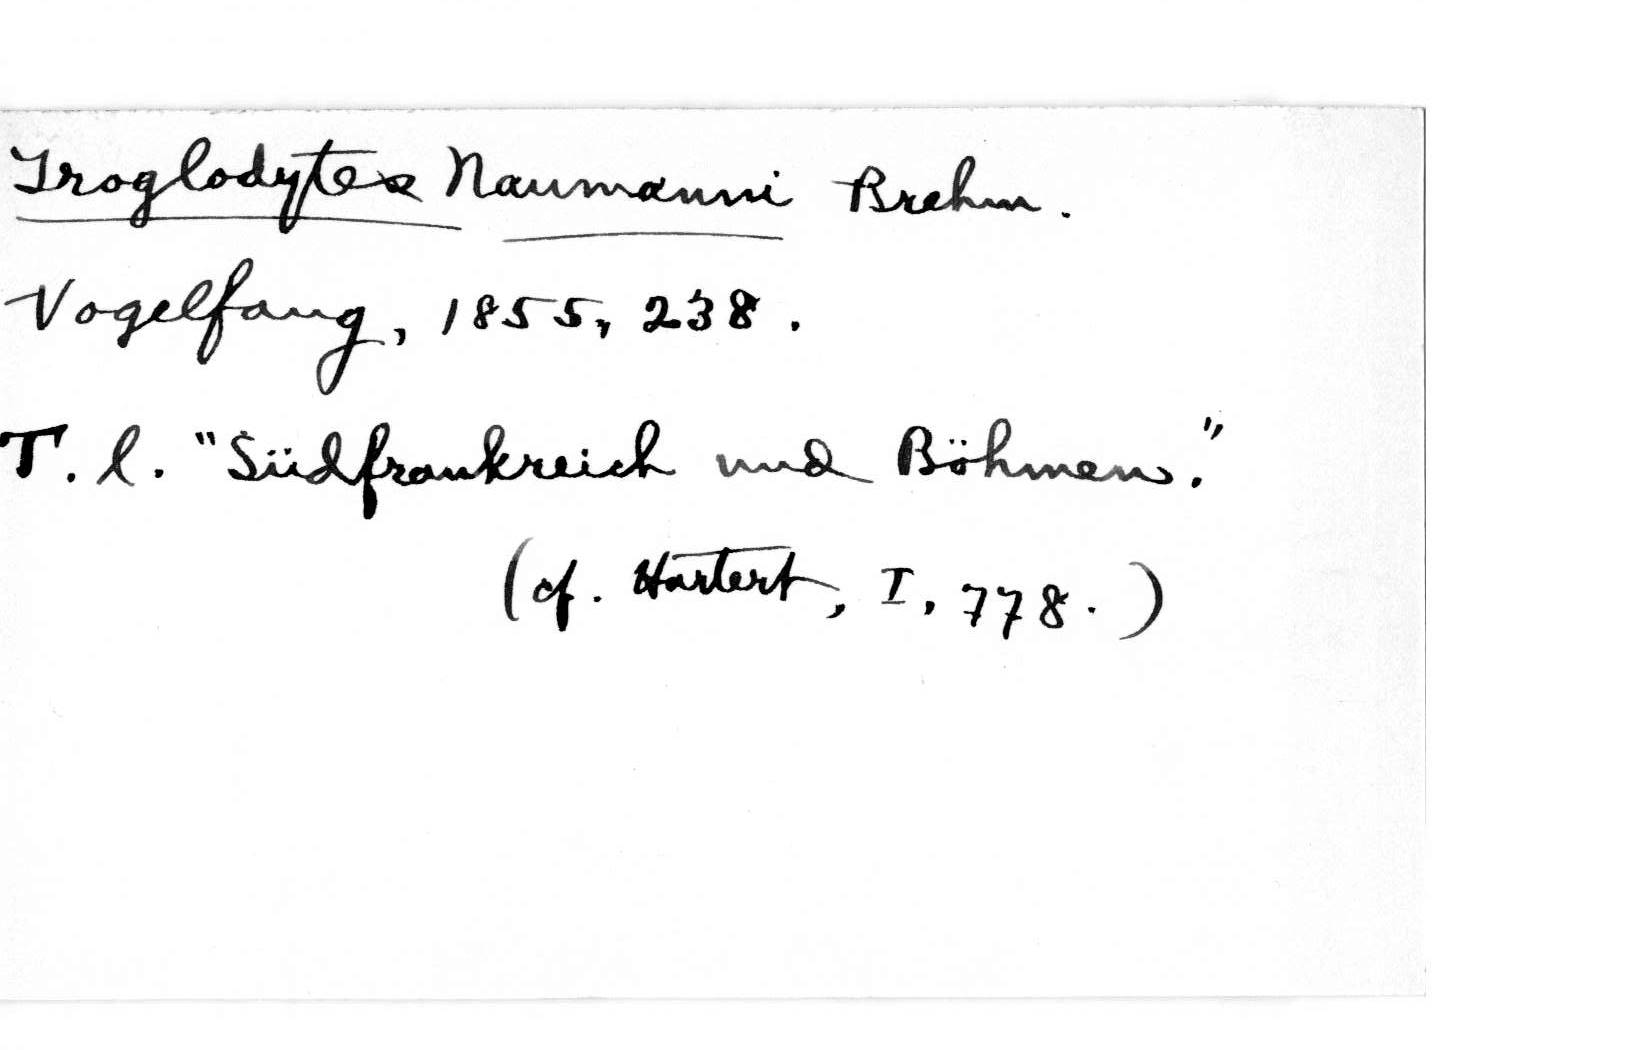 Troglodytes Naumanni Brehm.
Vogelfang, 1855, 238.
T. l. "Südfrankreich und Böhmen."
(cf. Hartert, I, 778.)